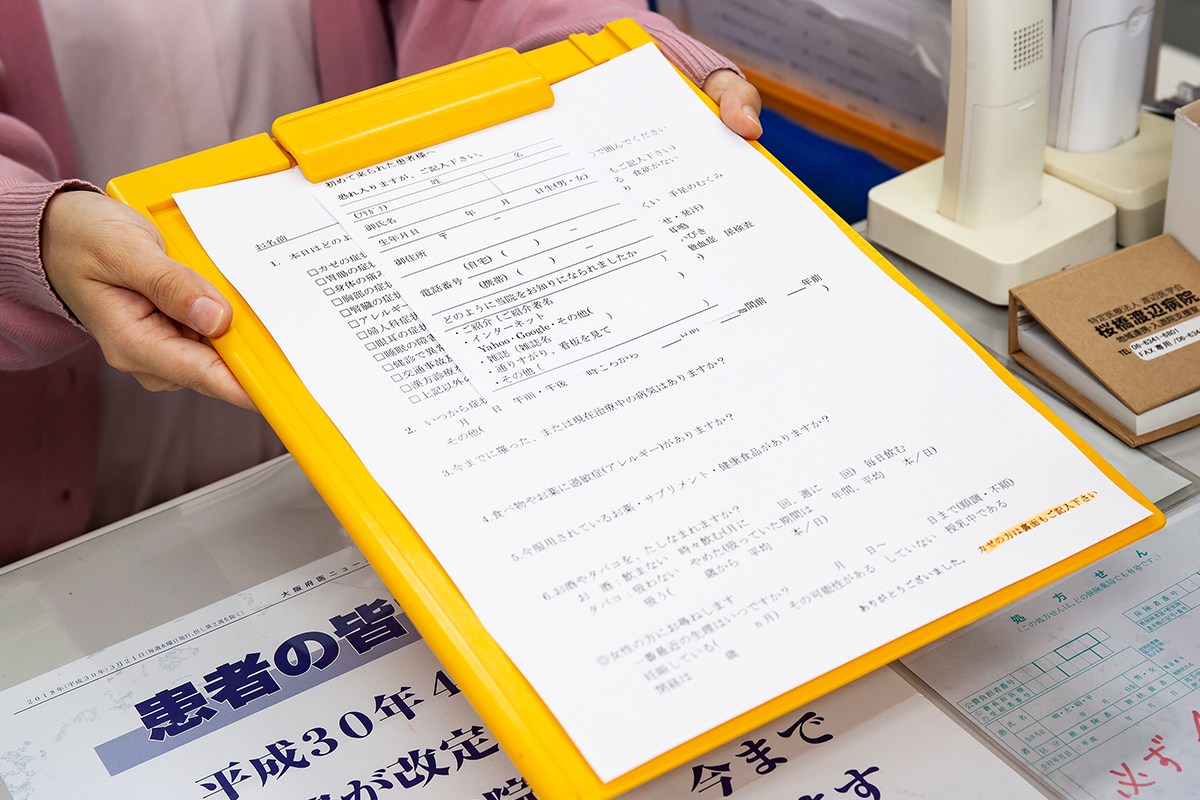 初めて来られた患者様へ
恐れ入りますが、ご記入下さい。
(ﾌﾘｶﾞﾅ) 姓 名
御氏名
生年月日 年 月 日生(男・女)
御住所 〒 －
電話番号 (自宅) ( ) －
(携帯) ( ) －
どのように当院をお知りになられましたか
・ご紹介 (ご紹介者名 )
・インターネット
Yahoo・Google・その他( )
・雑誌 (雑誌名 )
・通りすがり、看板を見て
・その他 ( )
お名前
1. 本日はどのよ
□カゼの症状
□胃腸の症状
□身体の痛み
□胸部の症状
□腎臓の症状
□アレルギー
□婦人科症状
□眼耳の症状
□睡眠の障害
□健診で異
□交通事故
□漢方診療
□上記以外
)で囲んでください
もご記入下さい)
る 食欲がない
くい 手足のむくみ
せ・発汗)
耳鳴
いびき
尿検査
週間前 年前
2. いつから症状
月 日 午前・午後 時ころから
その他( )
3.今までに罹った、または現在治療中の病気はありますか？
4.食べ物やお薬に過敏症(アレルギー)がありますか？
5.今服用されているお薬・サプリメント・健康食品がありますか？
6.お酒やタバコを、たしなまれますか？
お 酒：飲まない 時々飲む(月に 回、週に 回) 毎日飲む
タバコ：吸わない やめた(吸っていた期間は 年間、平均 本/日)
吸う( 歳から 平均 本/日)
◎女性の方にお尋ねします
一番最近の生理はいつですか？ 月 日～ 日まで(順調・不順)
妊娠している( ヵ月) その可能性がある していない 授乳中である
閉経は 歳
ありがとうございました。
カゼの方は裏面もご記入下さい
特定医療法人 渡辺医学会
桜橋渡辺病院
TEL 06-6341-6801
FAX専用
大阪府医ニュース
2018年(平成30年)3月21日(毎週水曜日発行、但し第2週を除く)
患者の皆
平成30年4
が改定
今まで
ます
処方せん
(この処方せんは、どの保険薬局でも有効です。)
公費負担者番号
保険者番号
氏名
明・大・昭・平
年 月 日
男・女
区分
被保険者
交付年月日 平成 年 月 日
必ず